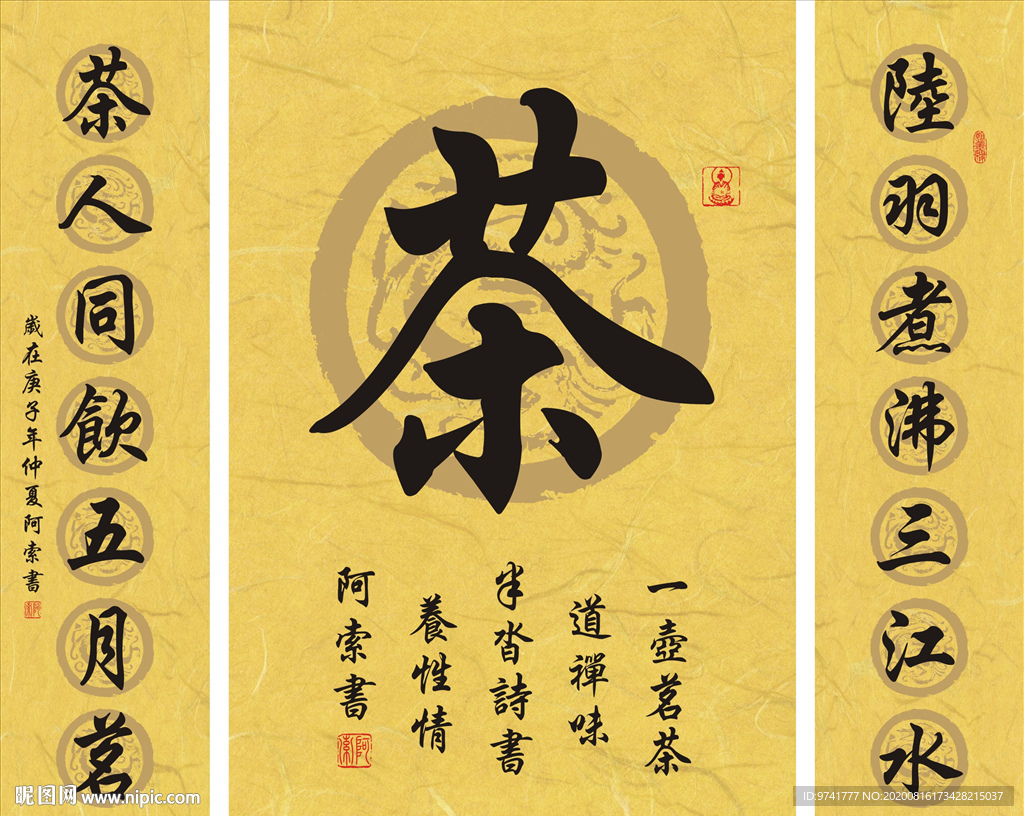 陸羽煮沸三江水
茶
一壺茗茶
道禪味
半沓詩書
養性情
阿索書
阿索
茶人同飲五月茗
歲在庚子年仲夏阿索書
昵图网 www.nipic.com
ID:9741777 NO:20200816173428215037